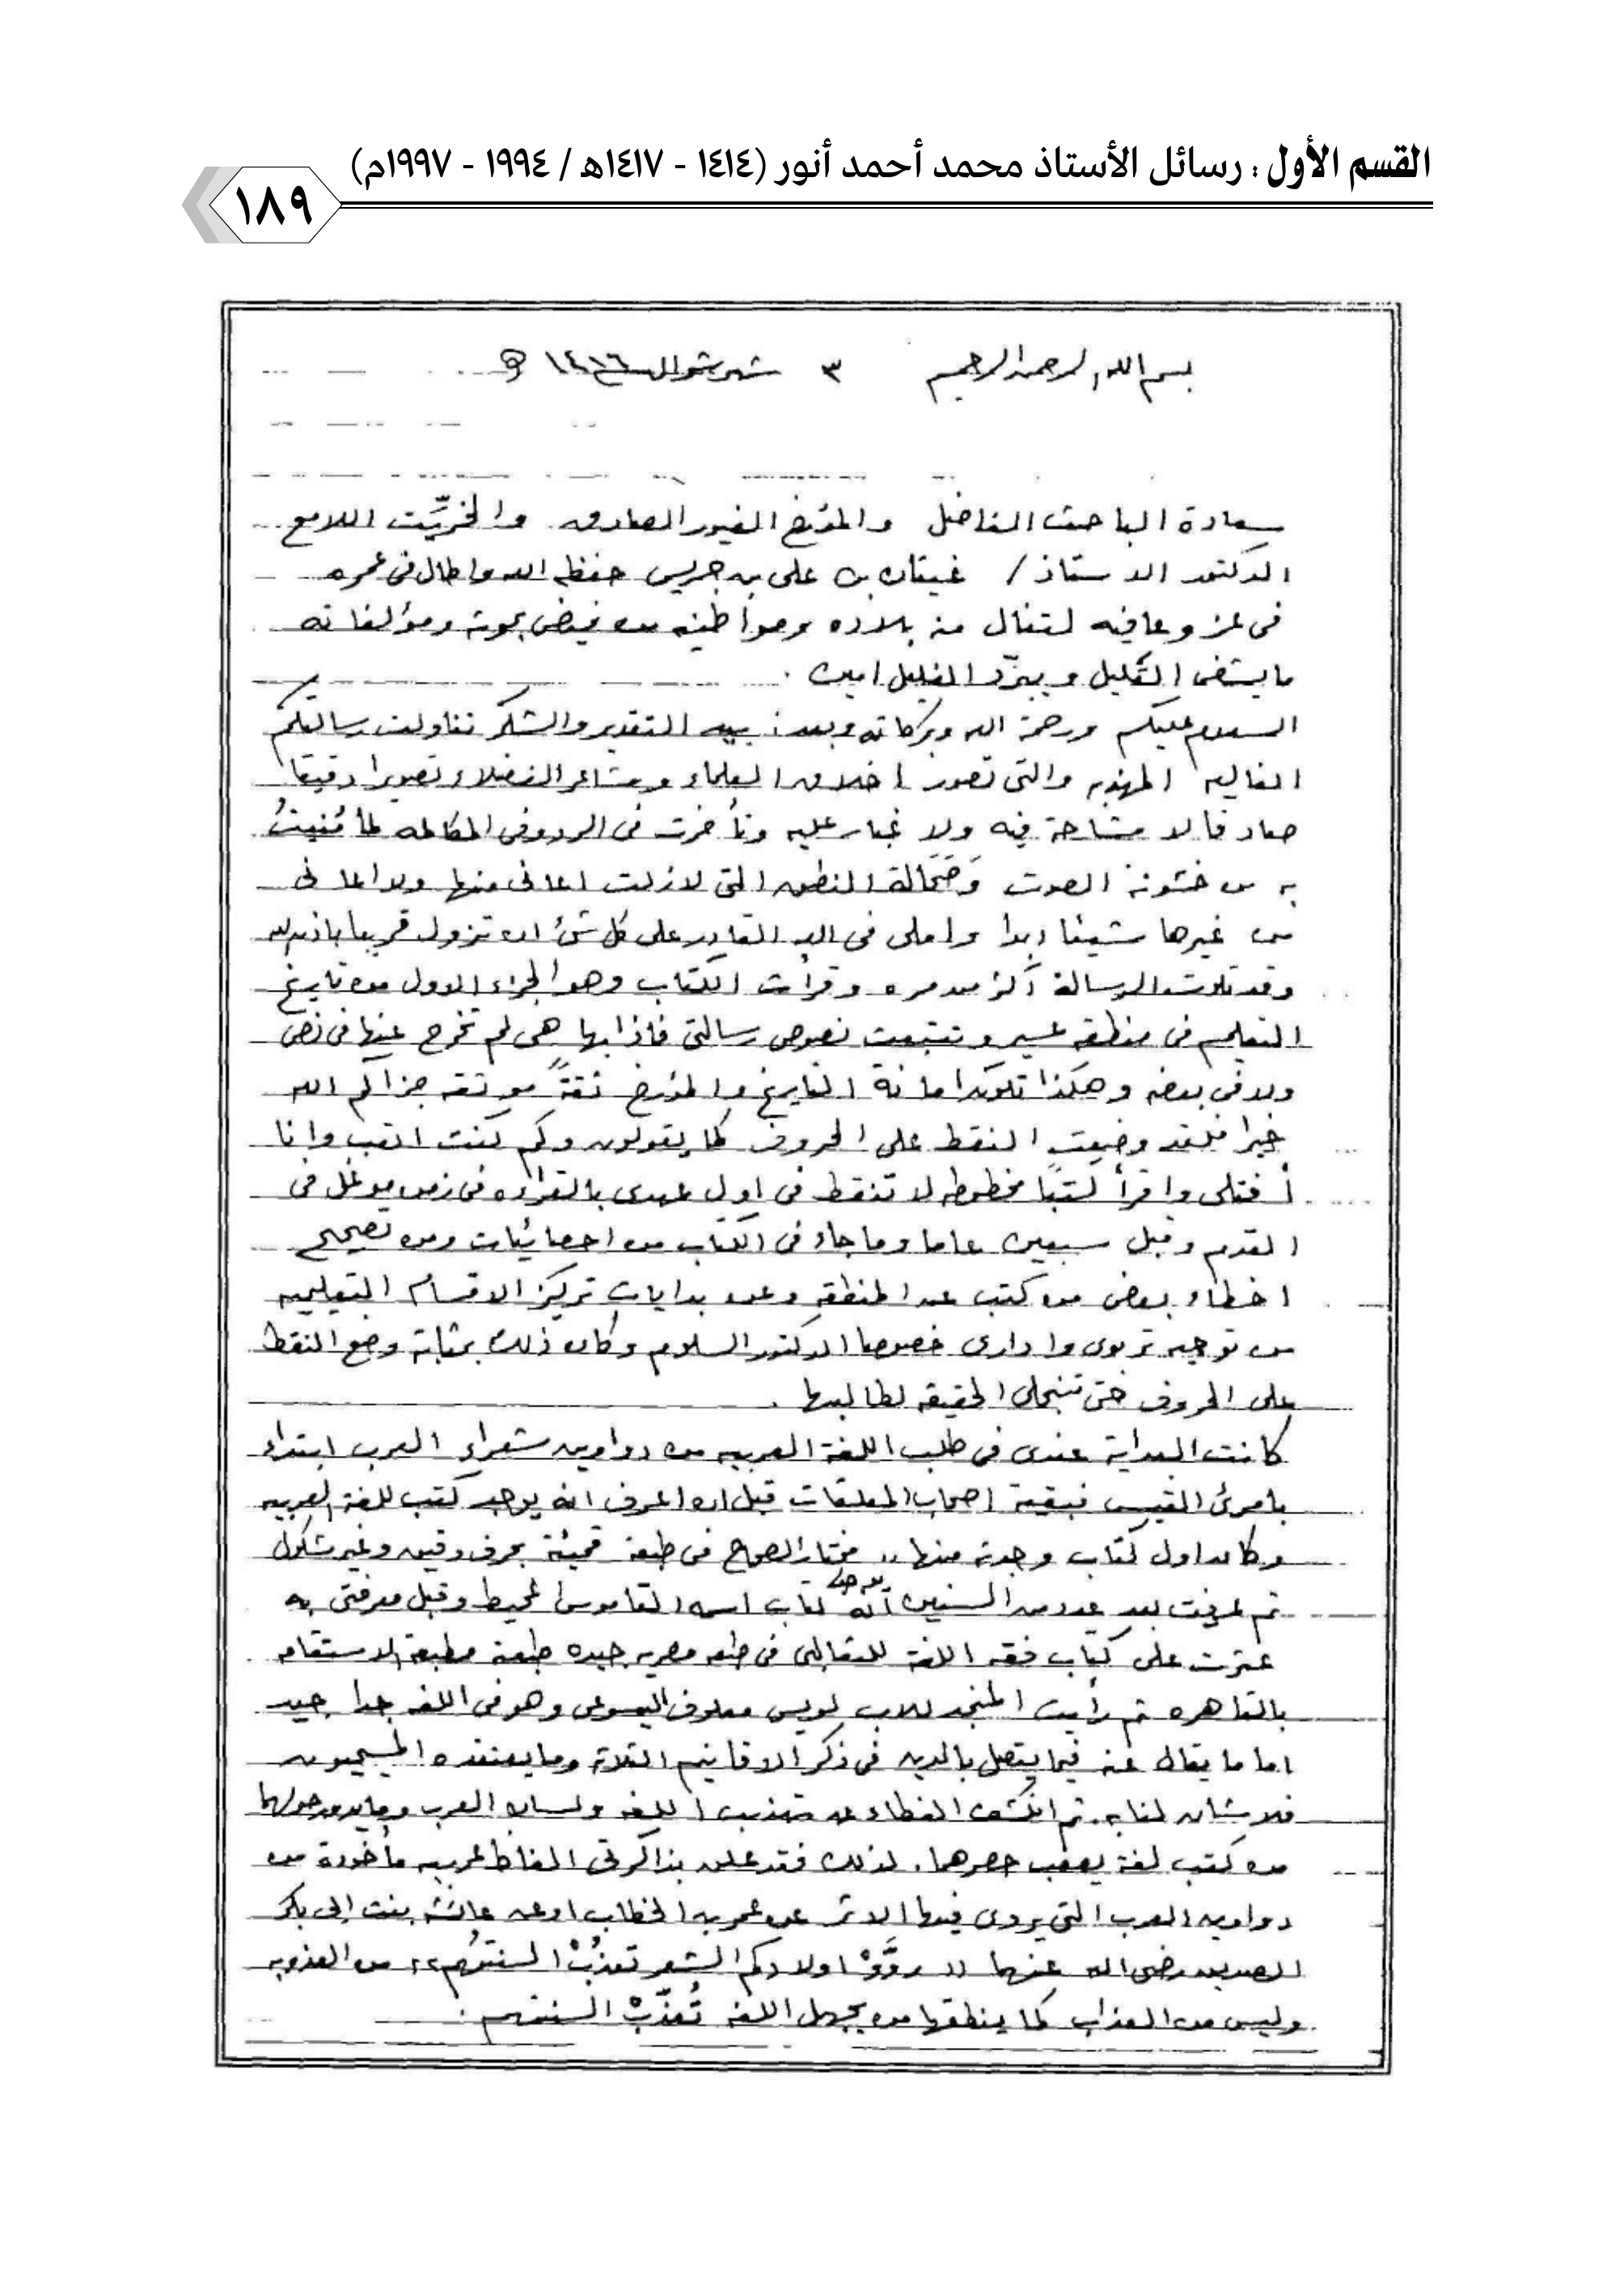 القسم الأول : رسائل الأستاذ محمد أحمد أنور (١٤١٤ - ١٤١٧هـ / ١٩٩٤ - ١٩٩٧م)
١٨٩
بسم الله الرحمن الرحيم ٣ شهر شوال ١٤١٦ هـ
سعادة الباحث الفاضل والمؤرخ الغيور الصادق والخرِّيت اللامع
الدكتور الاستاذ / غيثان بن على بن جريس حفظه الله واطال فى عمره
فى عز وعافيه لتنال منه بلاده ومواطنيه من فيض بحوثه ومؤلفاته
ما يشفى الغليل ويبرّد الغليل امين .
السلام عليكم ورحمة الله وبركاته وبعد : بيد التقدير والشكر تناولت رسالتكم
الغاليه المهذبه والتى تصور اخلاق العلماء ومشاعر الفضلاء تصويرا دقيقا
صادقا لا مشاحة فيه ولا غبار عليه وتأخرت فى الرد وفى المكالمه لما مُنيتُ
به من خشونة الصوت وضحالة النطق التى لازلت اعانى منها ولا اعانى
من غيرها شيئا ابدا واملى فى الله القادر على كل شئ ان تزول قريبا باذن الله
وقد تلوت الرسالة أكثر من مره وقرأت الكتاب وهو الجزء الاول من تاريخ
التعليم فى منطقة عسير وتتبعت نصوص رسالتى فاذا بها هى لم تخرج عنها فى نص
ولا فى بعضه وهكذا تكون امانة التاريخ والمؤرخ ثقةً موثقه جزاكم الله
خيرا فلقد وضعت النقط على الحروف كما يقولون وكم كنت اتعب وانا
أفتلى واقرأ كتبًا مخطوطه لا تنقط فى اول عهدى بالقراءه فى زمن موغل فى
القدم وقبل سبعين عاما وما جاء فى الكتاب من احصائيات ومن تصحيح
اخطاء بعض من كتب عن المنطقه وعن بدايات تركيز الاقسام التعليميه
من توجيه تربوى وادارى خصوصا الدكتور السلوم وكان ذلك بمثابة وضع النقط
على الحروف حتى تنجلى الحقيقه لطالبها .
كانت البداية عندى فى طلب اللغة العربيه من دواوين شعراء العرب ابتداء
بامرئ القيس فبقية اصحاب المعلقات قبل ان اعرف انه يوجد كتب للغة العربيه
وكان اول كتاب وجدته منها ،، مختار الصحاح فى طبعة قميئة بحرف دقيق وغير مشكول
ثم عرفت بعد عدد من السنين أنه كتاب اسمه القاموس المحيط وقبل معرفتى به
عثرت على كتاب فقه اللغة للثعالبى فى طبعه مصريه جيده طبعة مطبعة الاستقامه
بالقاهره ثم رأيت المنجد للاب لويس معلوف اليسوعى وهو فى اللغه جدا جيد
اما ما يقال عنه فيما يتصل بالدين فى ذكر الاقانيم الثلاثة وما يعتقده المسيحيون
فلا شأن لنا به . ثم انكشف الغطاء عن تهذيب اللغه ولسان العرب وما يدور حولهما
من كتب لغة يصعب حصرها . لذلك فقد علق بذاكرتى الفاظ عربيه مأخوذة من
دواوين العرب التى يروى فيها الاثر عن عمر بن الخطاب او عن عائشه بنت ابى بكر
الصديق رضى الله عنهما (( روُّوْا اولادكم الشعر تعذُبْ السنتُهم )) من العذوبه
وليس من العذاب كما ينطقها من يجهل اللغه تُعذَّبْ السنتهم .